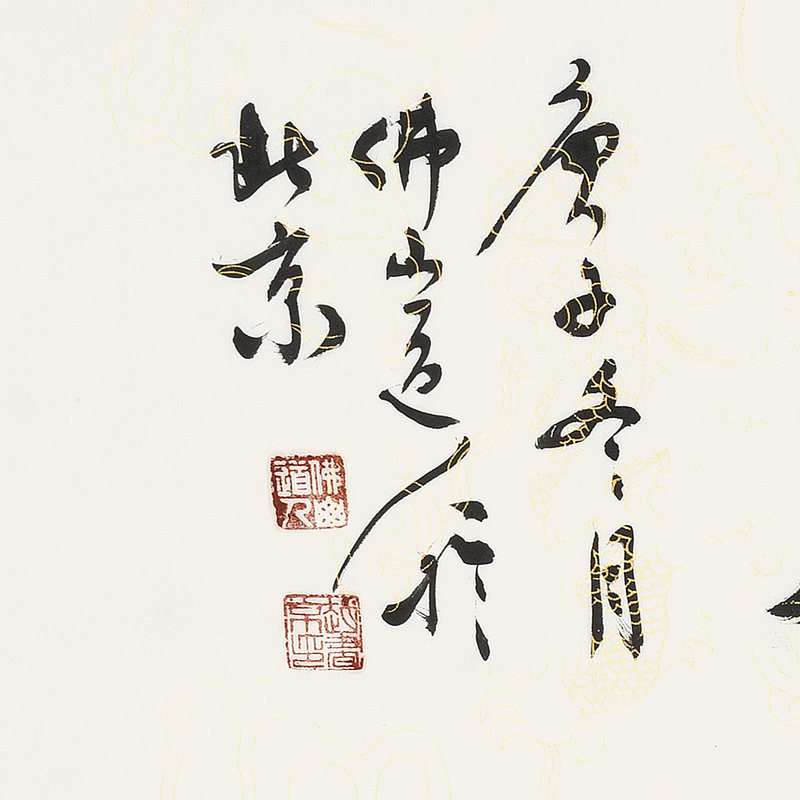 庚子冬月
佛山道人於
北京
佛山道人